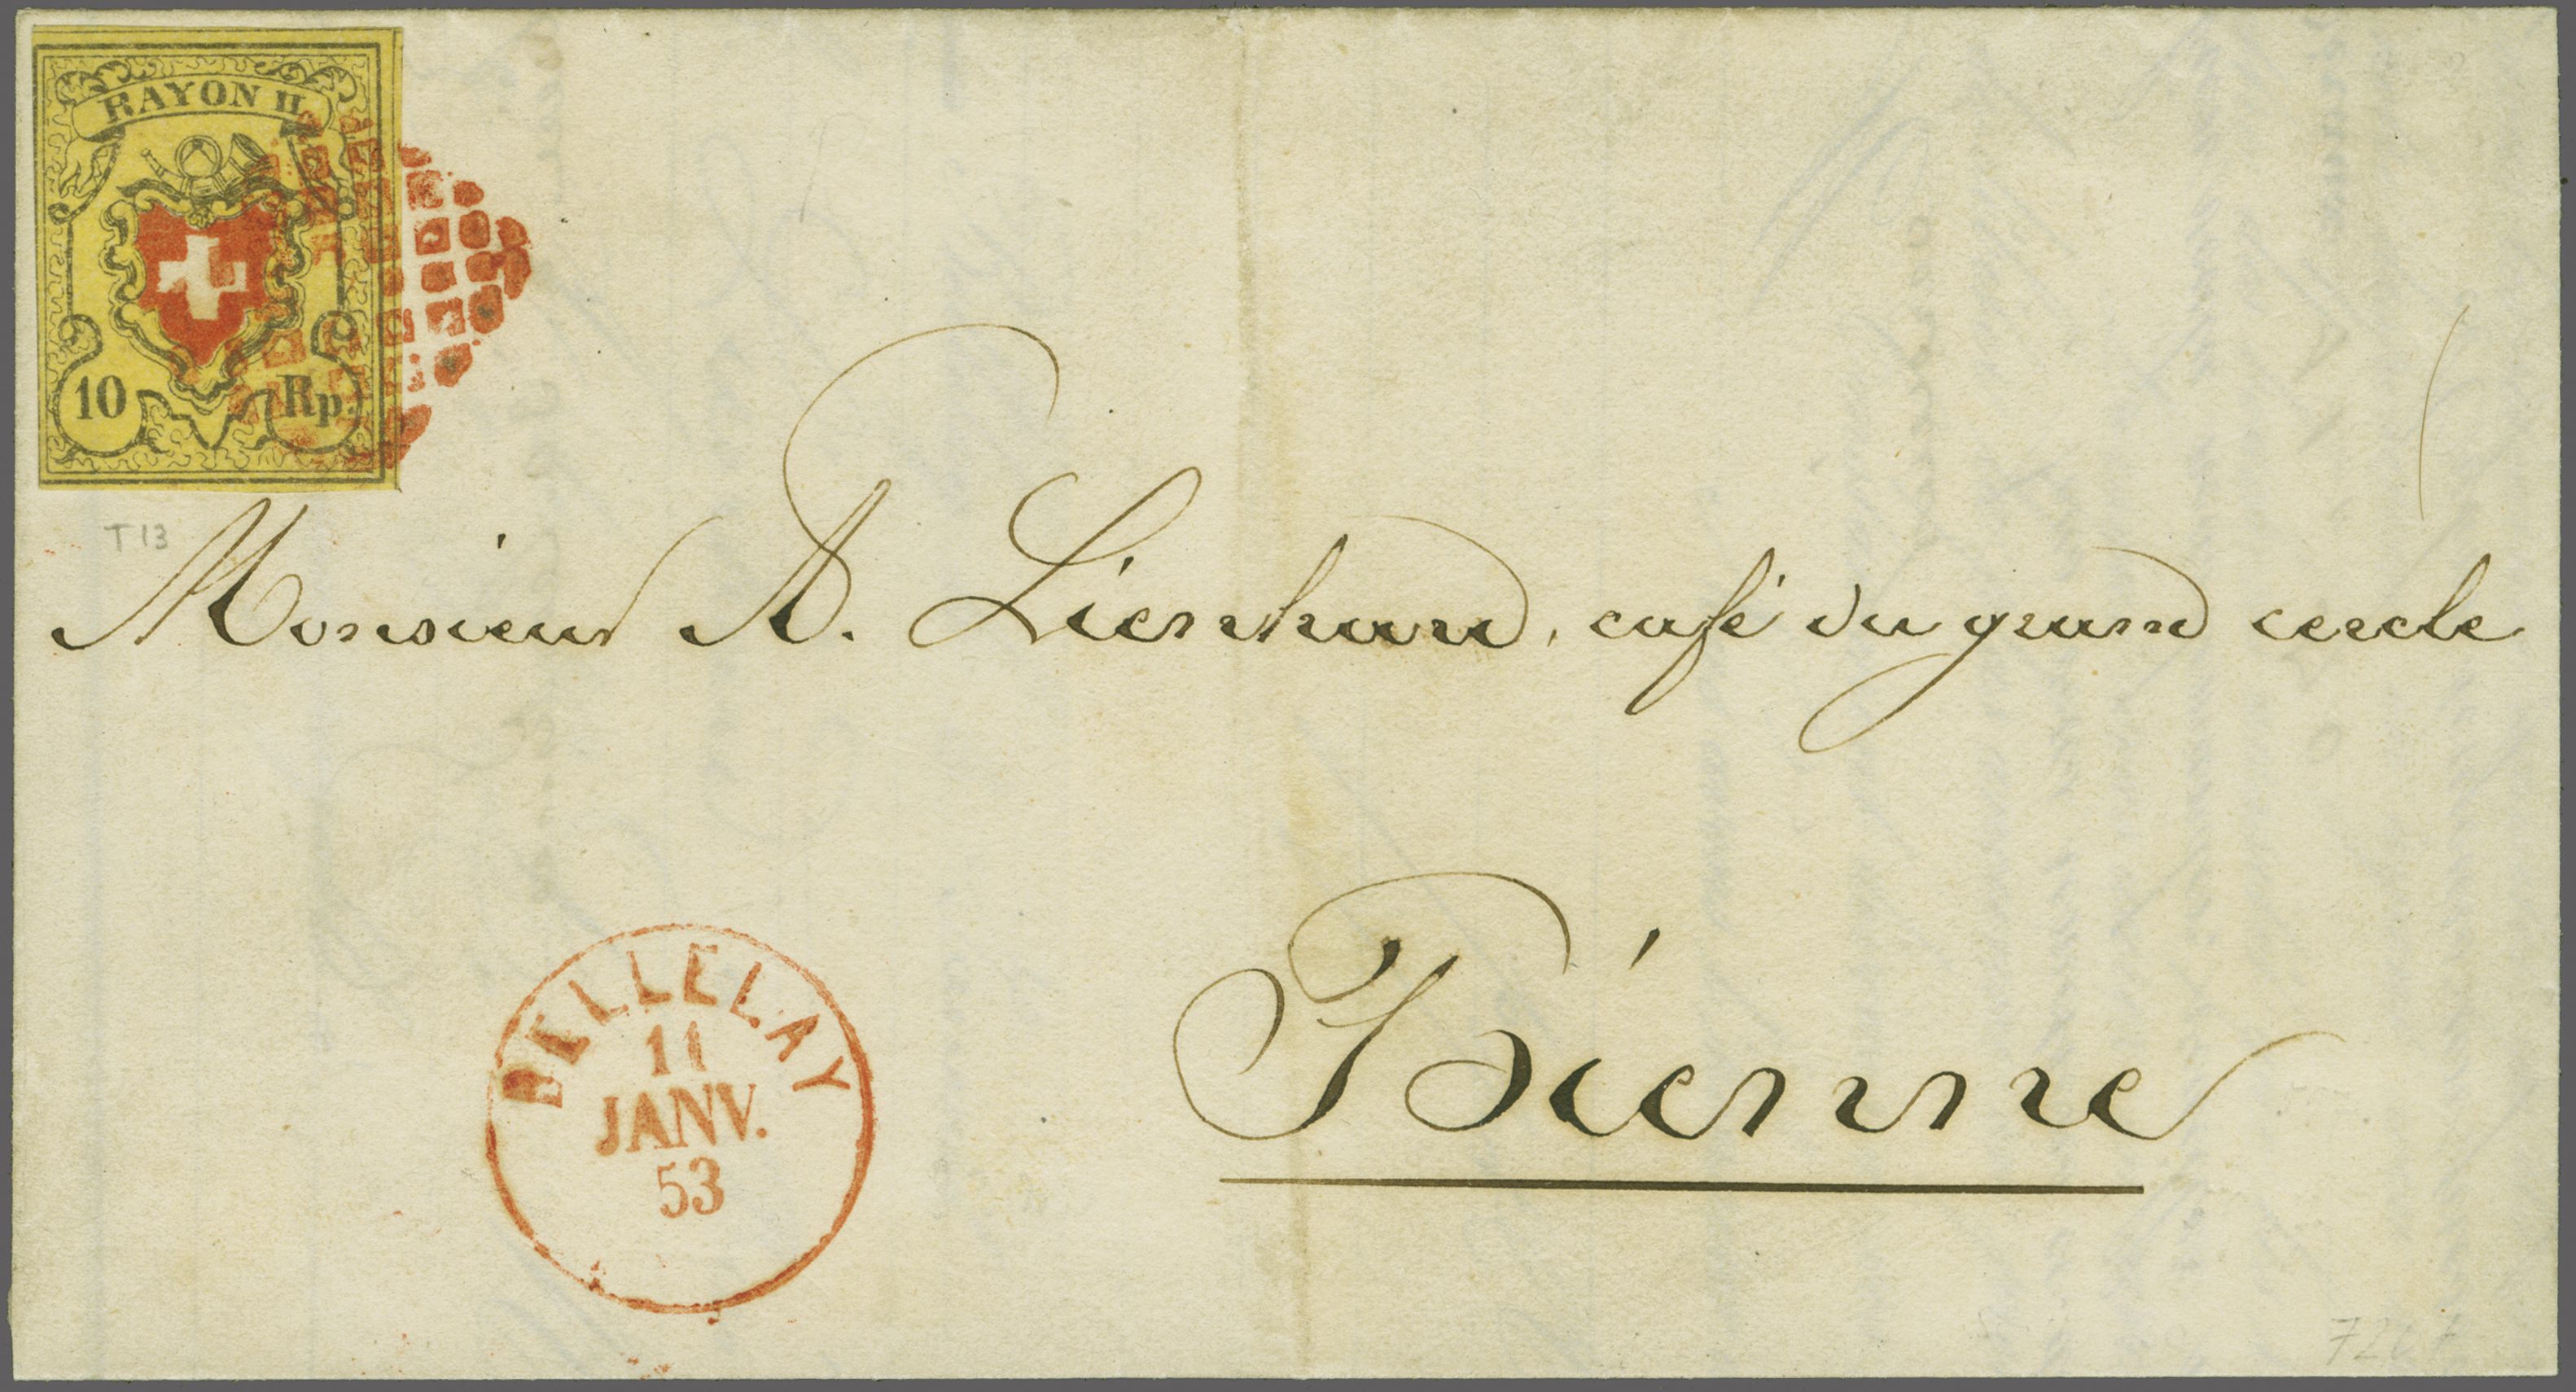 RAYON II.
10 Rp.
T13
Monsieur A. Lienhard, café du grand cercle
Bienne
BELLELAY
11
JANV.
53